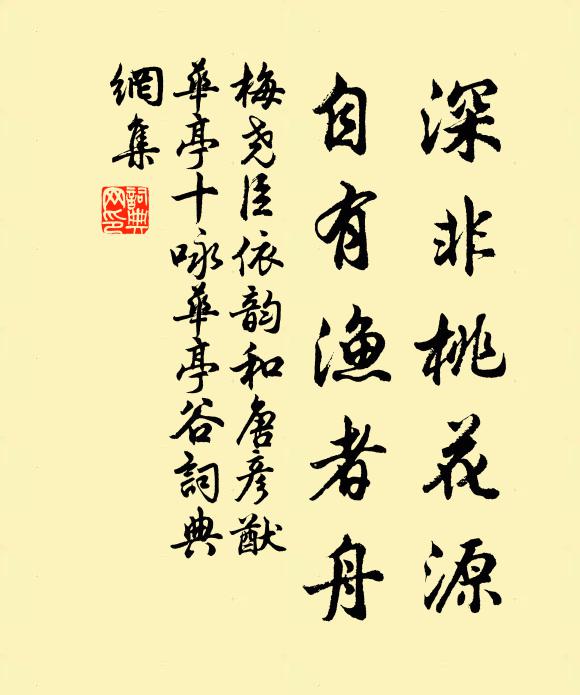 深非桃花源
自有漁者舟
梅尧臣依韵和唐彦猷
華亭十咏華亭谷詞典
網集
詞典網印